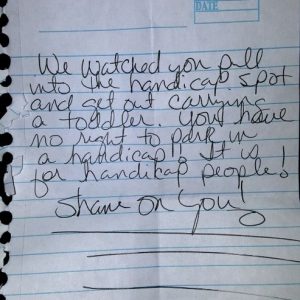 DATE
We watched you pull
into the handicap spot
and get out carrying
a toddler. You have
no right to park in
a handicap!! It is
for handicap people!
Shame on You!